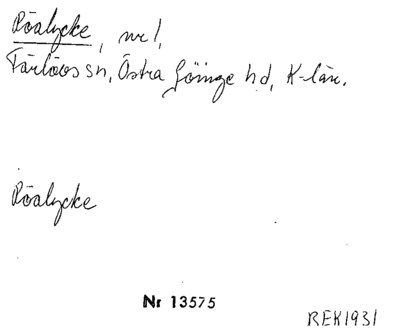 Röalycke, nr 1,
Färlövs sn, Östra Göinge hd, K-län.
Röalycke
Nr 13575
REK1931